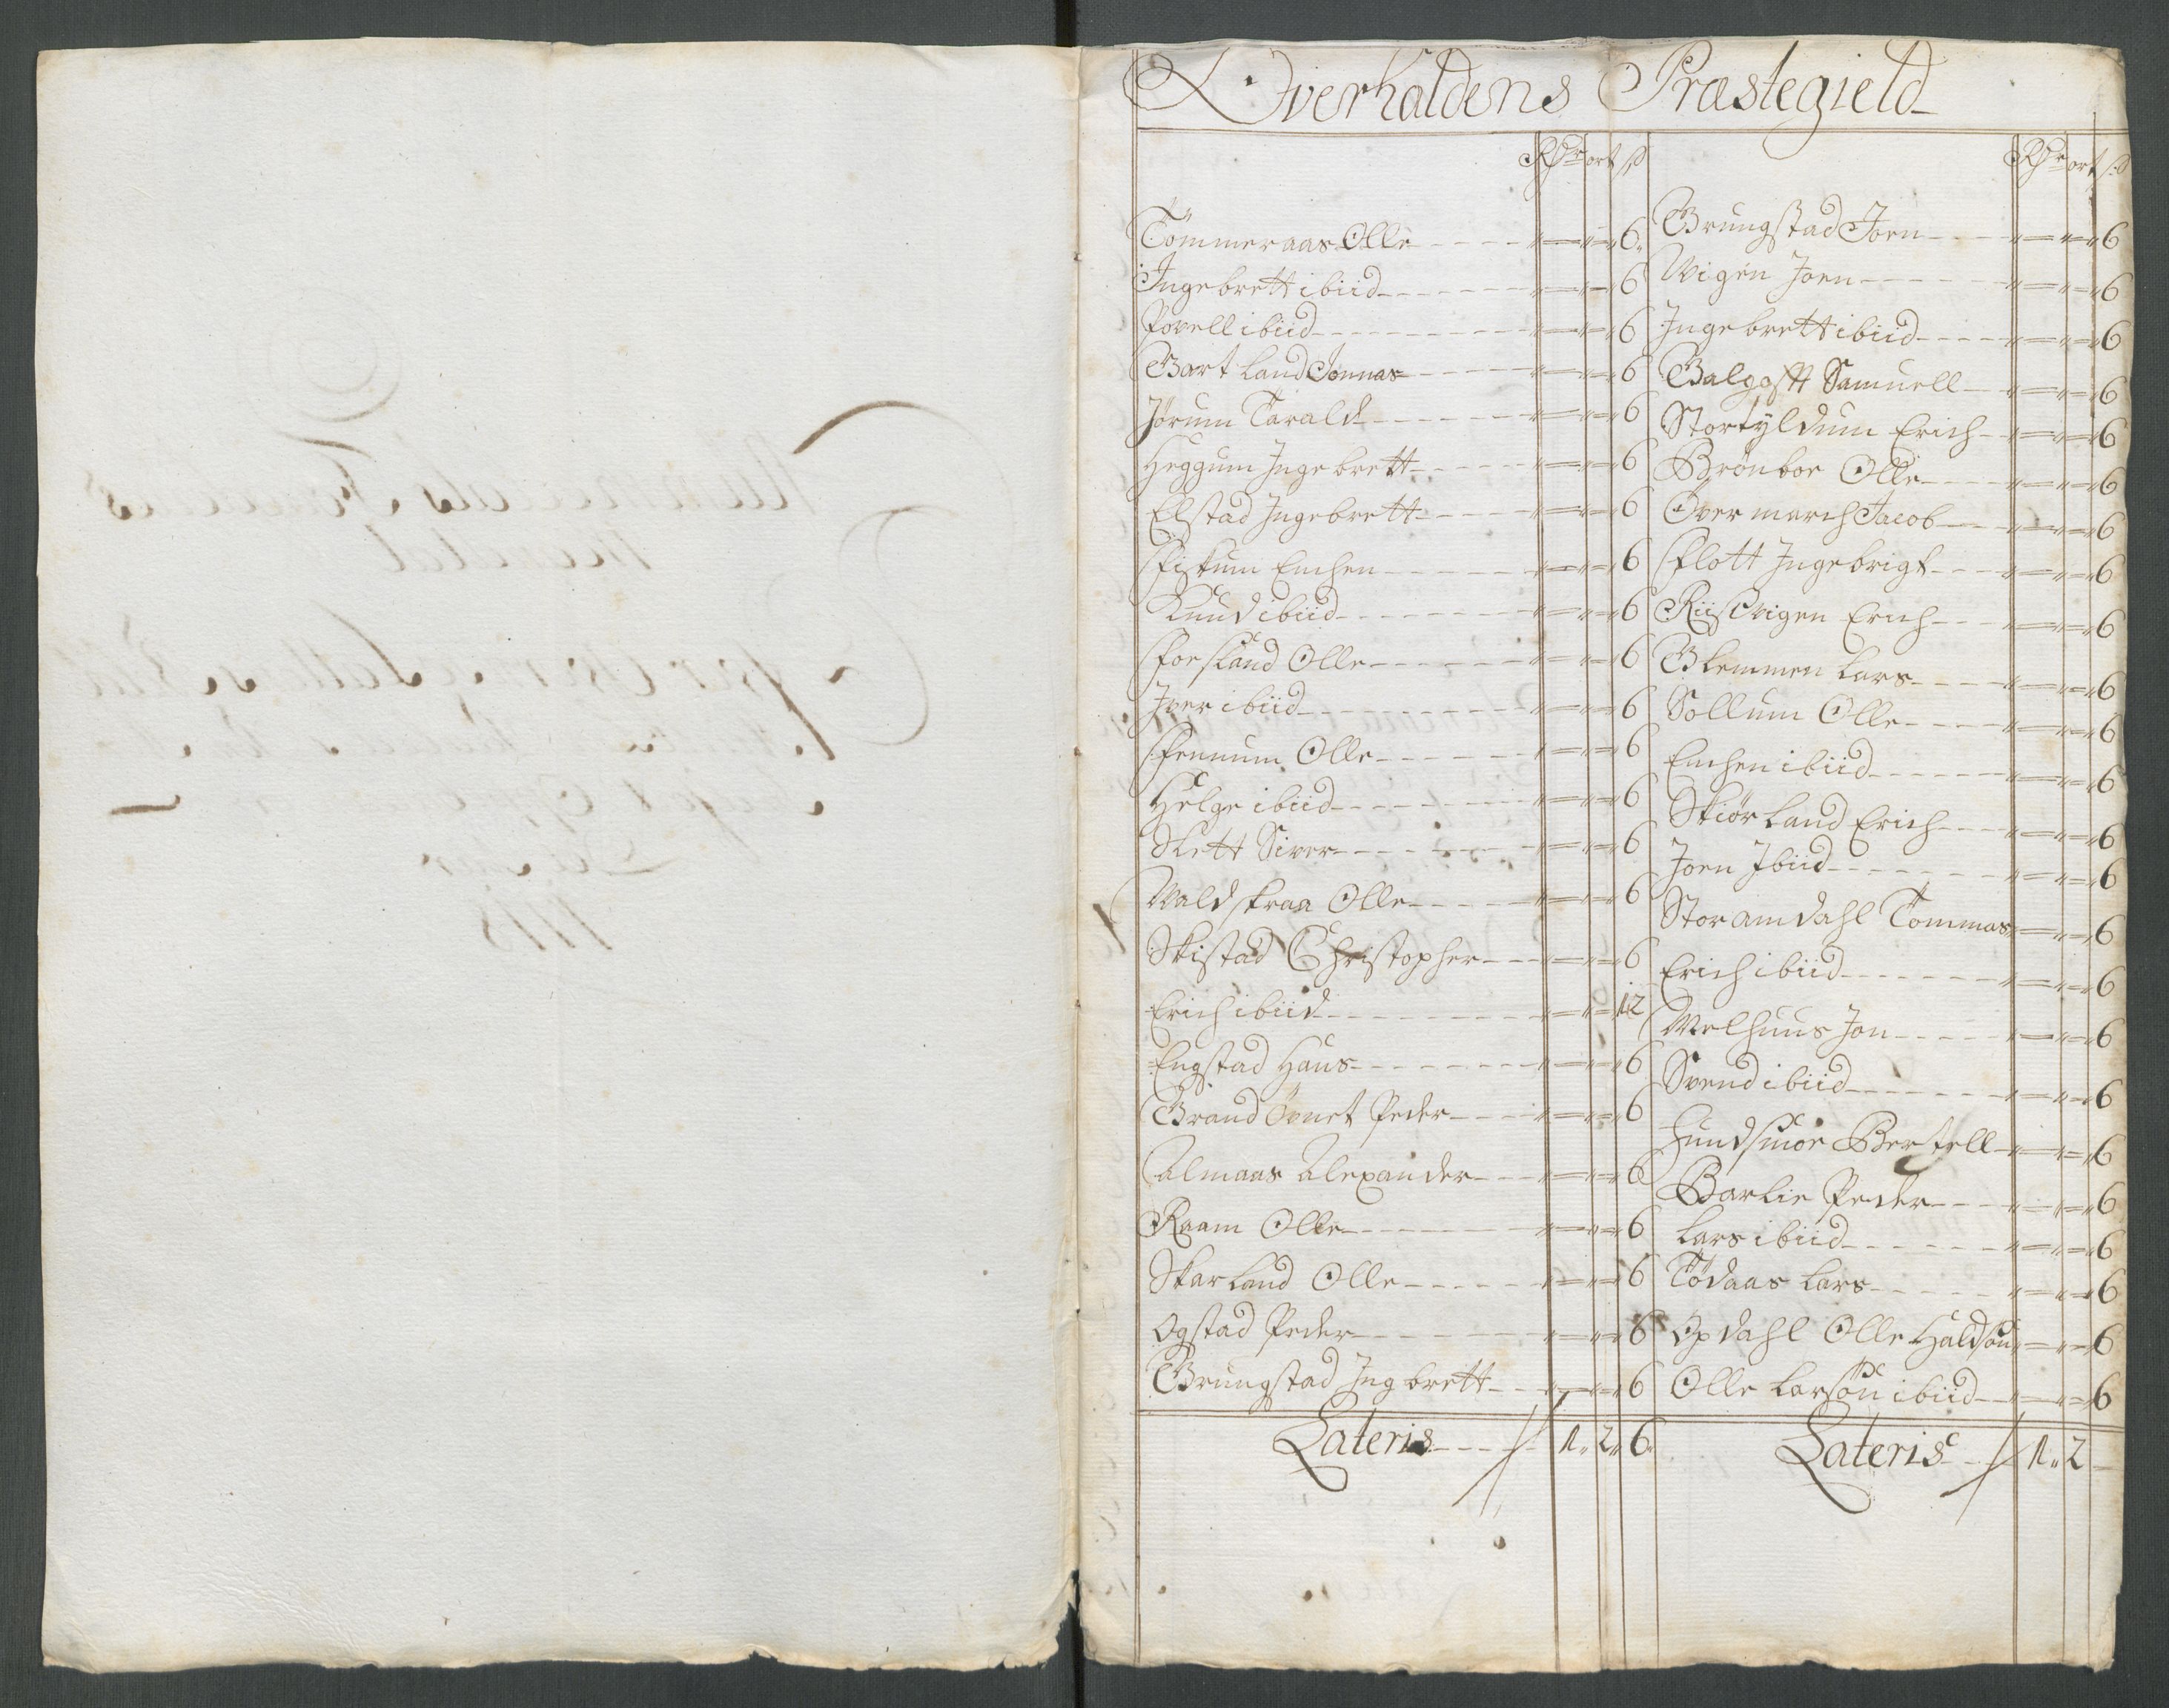 Overhaldens Præstegield
Rdr ort ß
Tömmeraas Olle - - - - „ — „ = „ 6
Ingebrett ibiid - - - - „ — „ = „ 6
Povell ibiid - - - - „ — „ = „ 6
Bartland Jonnas - - - - „ — „ = „ 6
Jörum Tarald - - - - „ — „ = „ 6
Heggum Ingebrett - - - - „ — „ = „ 6
Elstad Ingebrett - - - - „ — „ = „ 6
Fiskum Enchen - - - - „ — „ = „ 6
Knud ibiid - - - - „ — „ = „ 6
Forsland Olle - - - - „ — „ = „ 6
Iver ibiid - - - - „ — „ = „ 6
Fennum Olle - - - - „ — „ = „ 6
Helge ibiid - - - - „ — „ = „ 6
Slett Siver - - - - „ — „ = „ 6
Waldskraa Olle - - - - „ — „ = „ 6
Skistad Christopher - - - „ — „ = „ 6
Erich ibiid - - - - „ — „ = 12
Engstad Hans - - - - „ — „ = „ 6
Grandövnet Peder - - - „ — „ = „ 6
Almaas Alexander - - - „ — „ = „ 6
Raam Olle - - - - „ — „ = „ 6
Skarland Olle - - - - „ — „ = „ 6
Ogstad Peder - - - - „ — „ = „ 6
Grungstad Ingbrett - - „ — „ = „ 6
Lateris - - - - 1„ 2„ 6
Rdr ort ß
Grungstad Joen - - - „ — „ = „ 6
Wigen Joen - - - - „ — „ = „ 6
Ingebrett ibiid - - - - „ — „ = „ 6
Galgoftt Samuell - „ — „ = „ 6
Stortyldum Erich - „ — „ = „ 6
Brönboe Olle - - - - „ — „ = „ 6
Övermarch Jacob - - „ — „ = „ 6
Flott Ingebrigt - - - „ — „ = „ 6
Riisevigen Erich - - - „ — „ = „ 6
Glemmen Lars - - - - „ — „ = „ 6
Sollum Olle - - - - „ — „ = „ 6
Enchen ibiid - - - - „ — „ = „ 6
Skiörland Erich - - - „ — „ = „ 6
Joen Ibiid - - - - „ — „ = „ 6
Storamdahl Tommas „ — „ = „ 6
Erich ibiid - - - - „ — „ = „ 6
Melhuus Jon - - - - „ — „ = „ 6
Svend ibiid - - - - „ — „ = „ 6
Hundsmoe Bertell - „ — „ = „ 6
Barlie Peder - - - „ — „ = „ 6
Lars ibiid - - - - „ — „ = „ 6
Tödaas Lars - - - - „ — „ = „ 6
Opdahl Olle Haldsön „ — „ = „ 6
Olle Larsön ibiid - - „ — „ = „ 6
Lateris - - 1„ 2 –